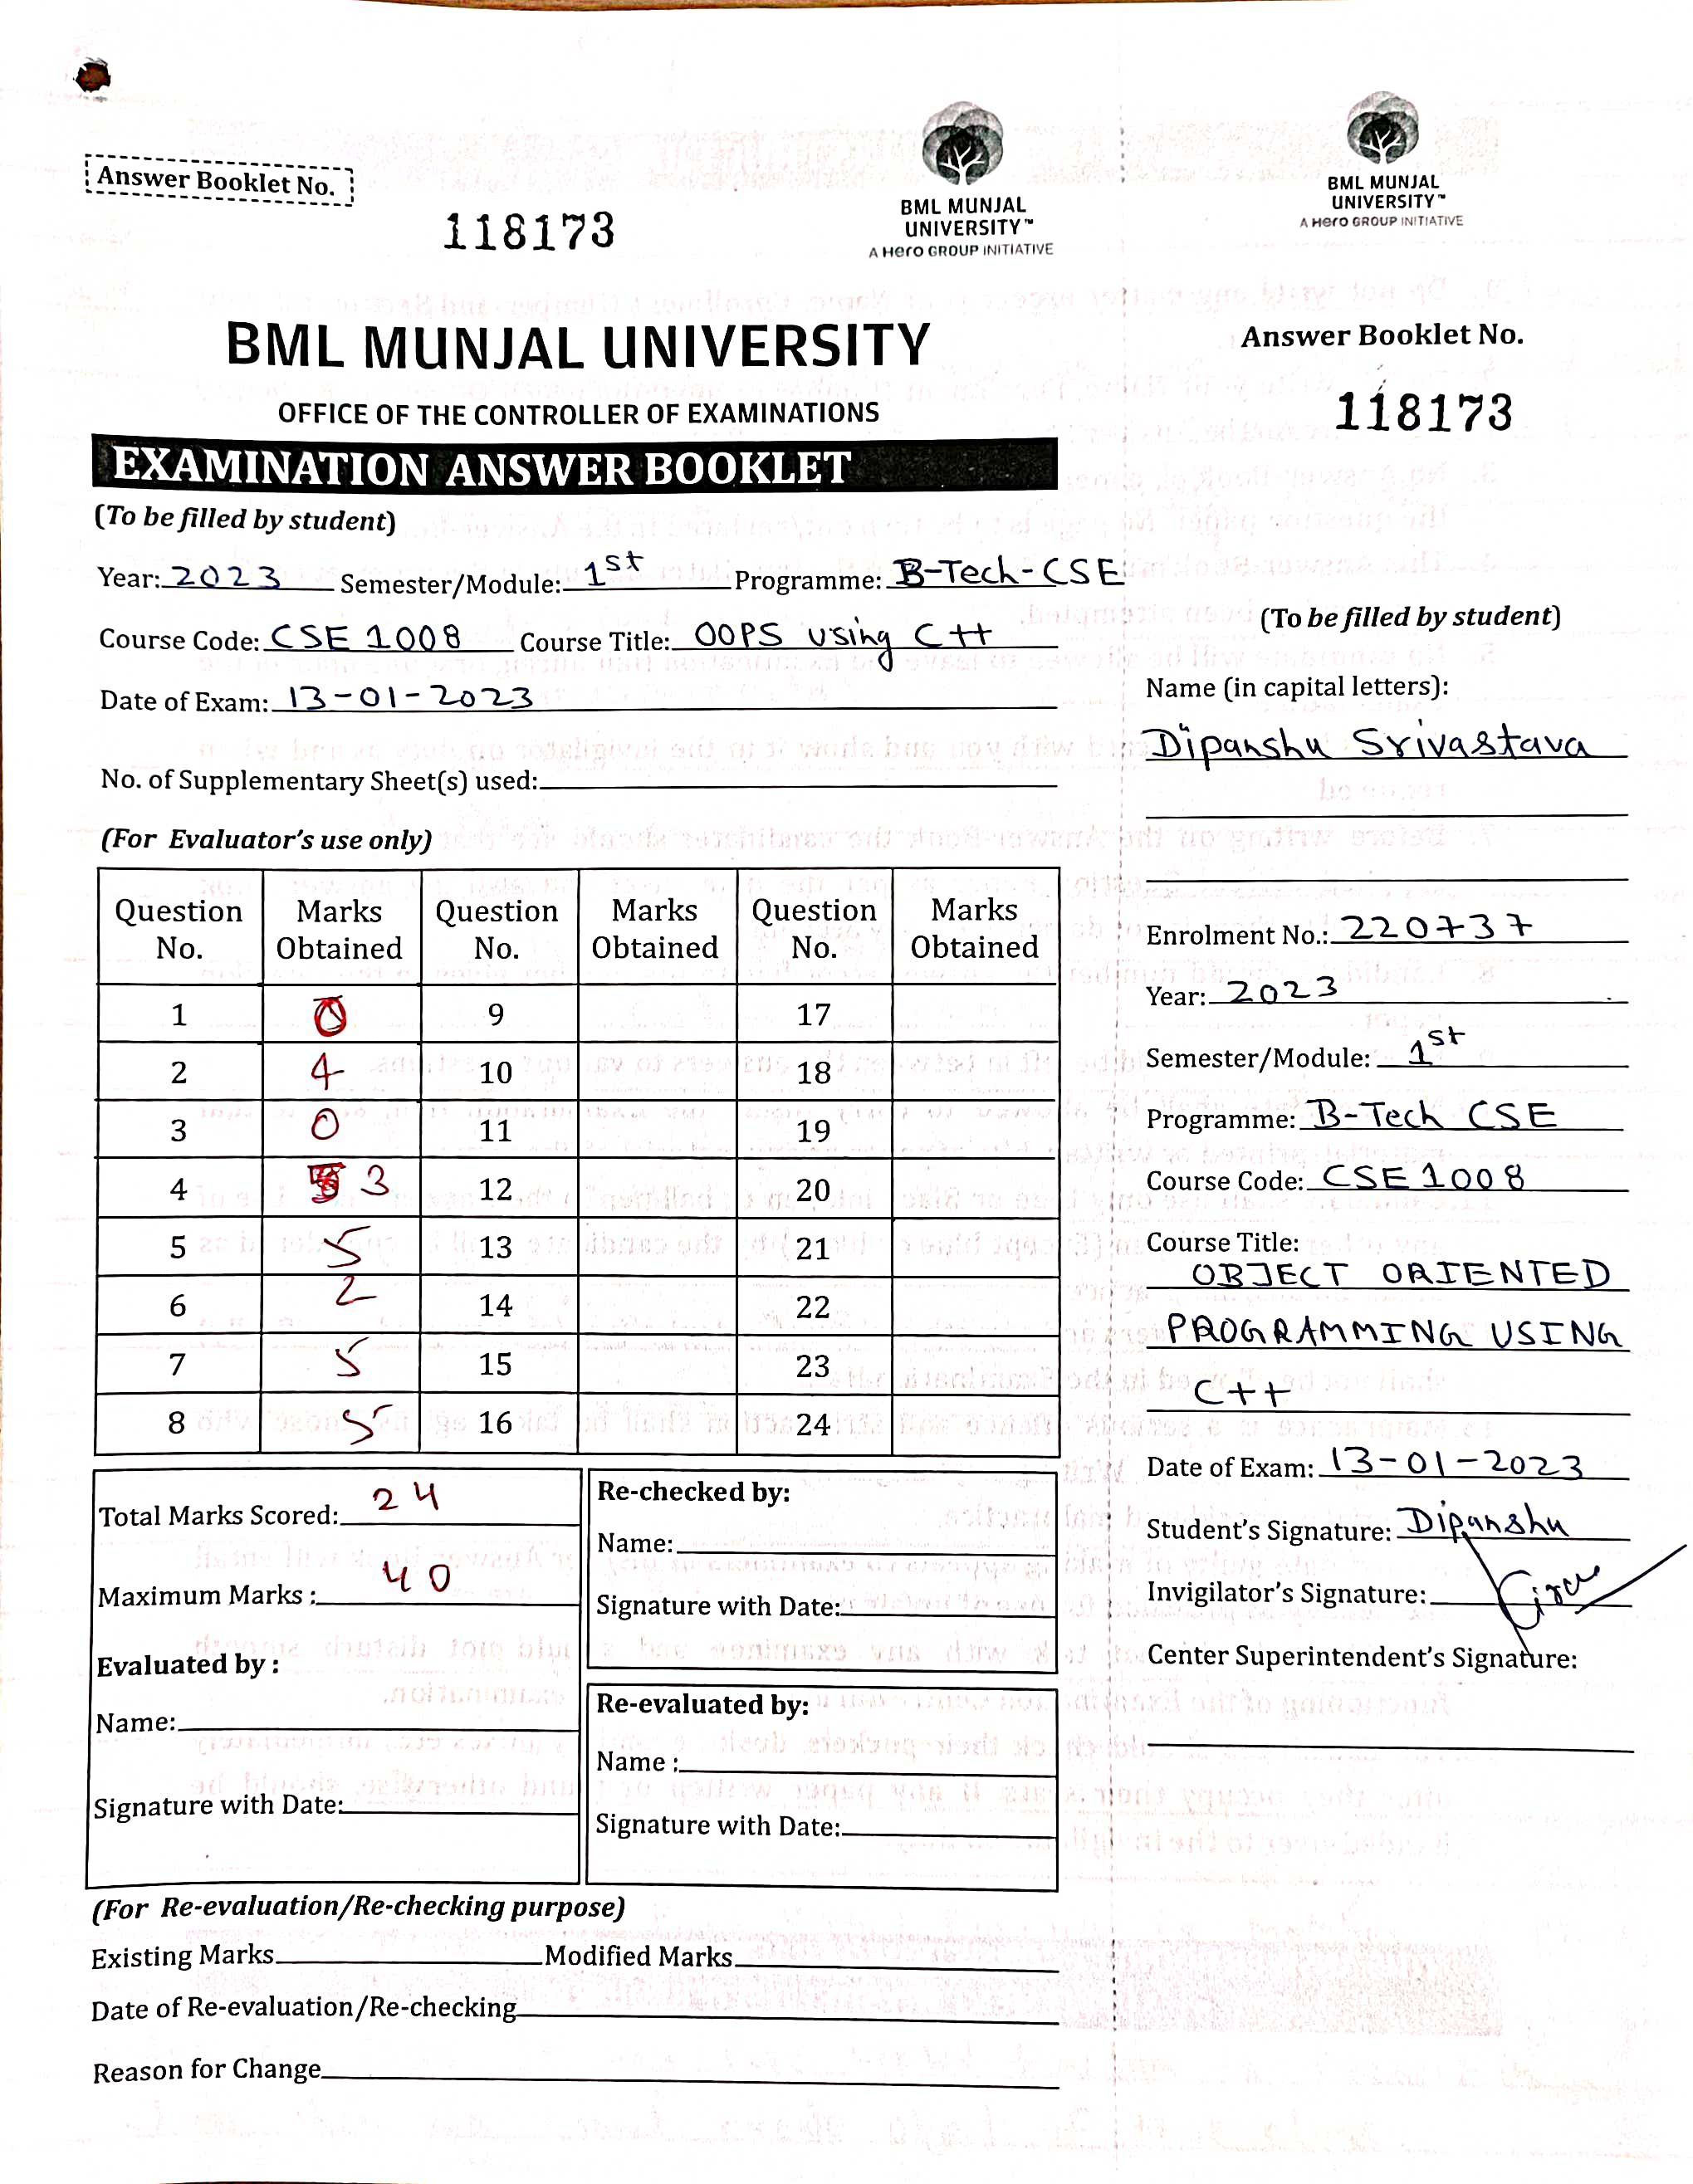 Answer Booklet No.
118173
BML MUNJAL
UNIVERSITY™
A Hero GROUP INITIATIVE
BML MUNJAL UNIVERSITY
OFFICE OF THE CONTROLLER OF EXAMINATIONS
EXAMINATION ANSWER BOOKLET
(To be filled by student)
Year: 2023 Semester/Module: 1st Programme: B-Tech-CSE
Course Code: CSE 1008 Course Title: OOPS using C++
Date of Exam: 13-01-2023
No. of Supplementary Sheet(s) used:
(For Evaluator's use only)
Question No. Marks Obtained Question No. Marks Obtained Question No. Marks Obtained
1 0 9 17
2 4 10 18
3 0 11 19
4 3 12 20
5 5 13 21
6 2 14 22
7 5 15 23
8 5 16 24
Total Marks Scored: 24
Maximum Marks : 40
Evaluated by :
Name:
Signature with Date:
Re-checked by:
Name:
Signature with Date:
Re-evaluated by:
Name :
Signature with Date:
(For Re-evaluation/Re-checking purpose)
Existing Marks Modified Marks
Date of Re-evaluation/Re-checking
Reason for Change
BML MUNJAL
UNIVERSITY™
A Hero GROUP INITIATIVE
Answer Booklet No.
118173
(To be filled by student)
Name (in capital letters):
Dipanshu Srivastava
Enrolment No.: 220737
Year: 2023
Semester/Module: 1st
Programme: B-Tech CSE
Course Code: CSE 1008
Course Title:
OBJECT ORIENTED
PROGRAMMING USING
C++
Date of Exam: 13-01-2023
Student's Signature: Dipanshu
Invigilator's Signature:
Center Superintendent's Signature: